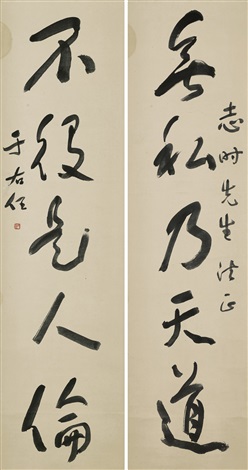 無私乃天道
志时先生法正
不役是人倫
于右任